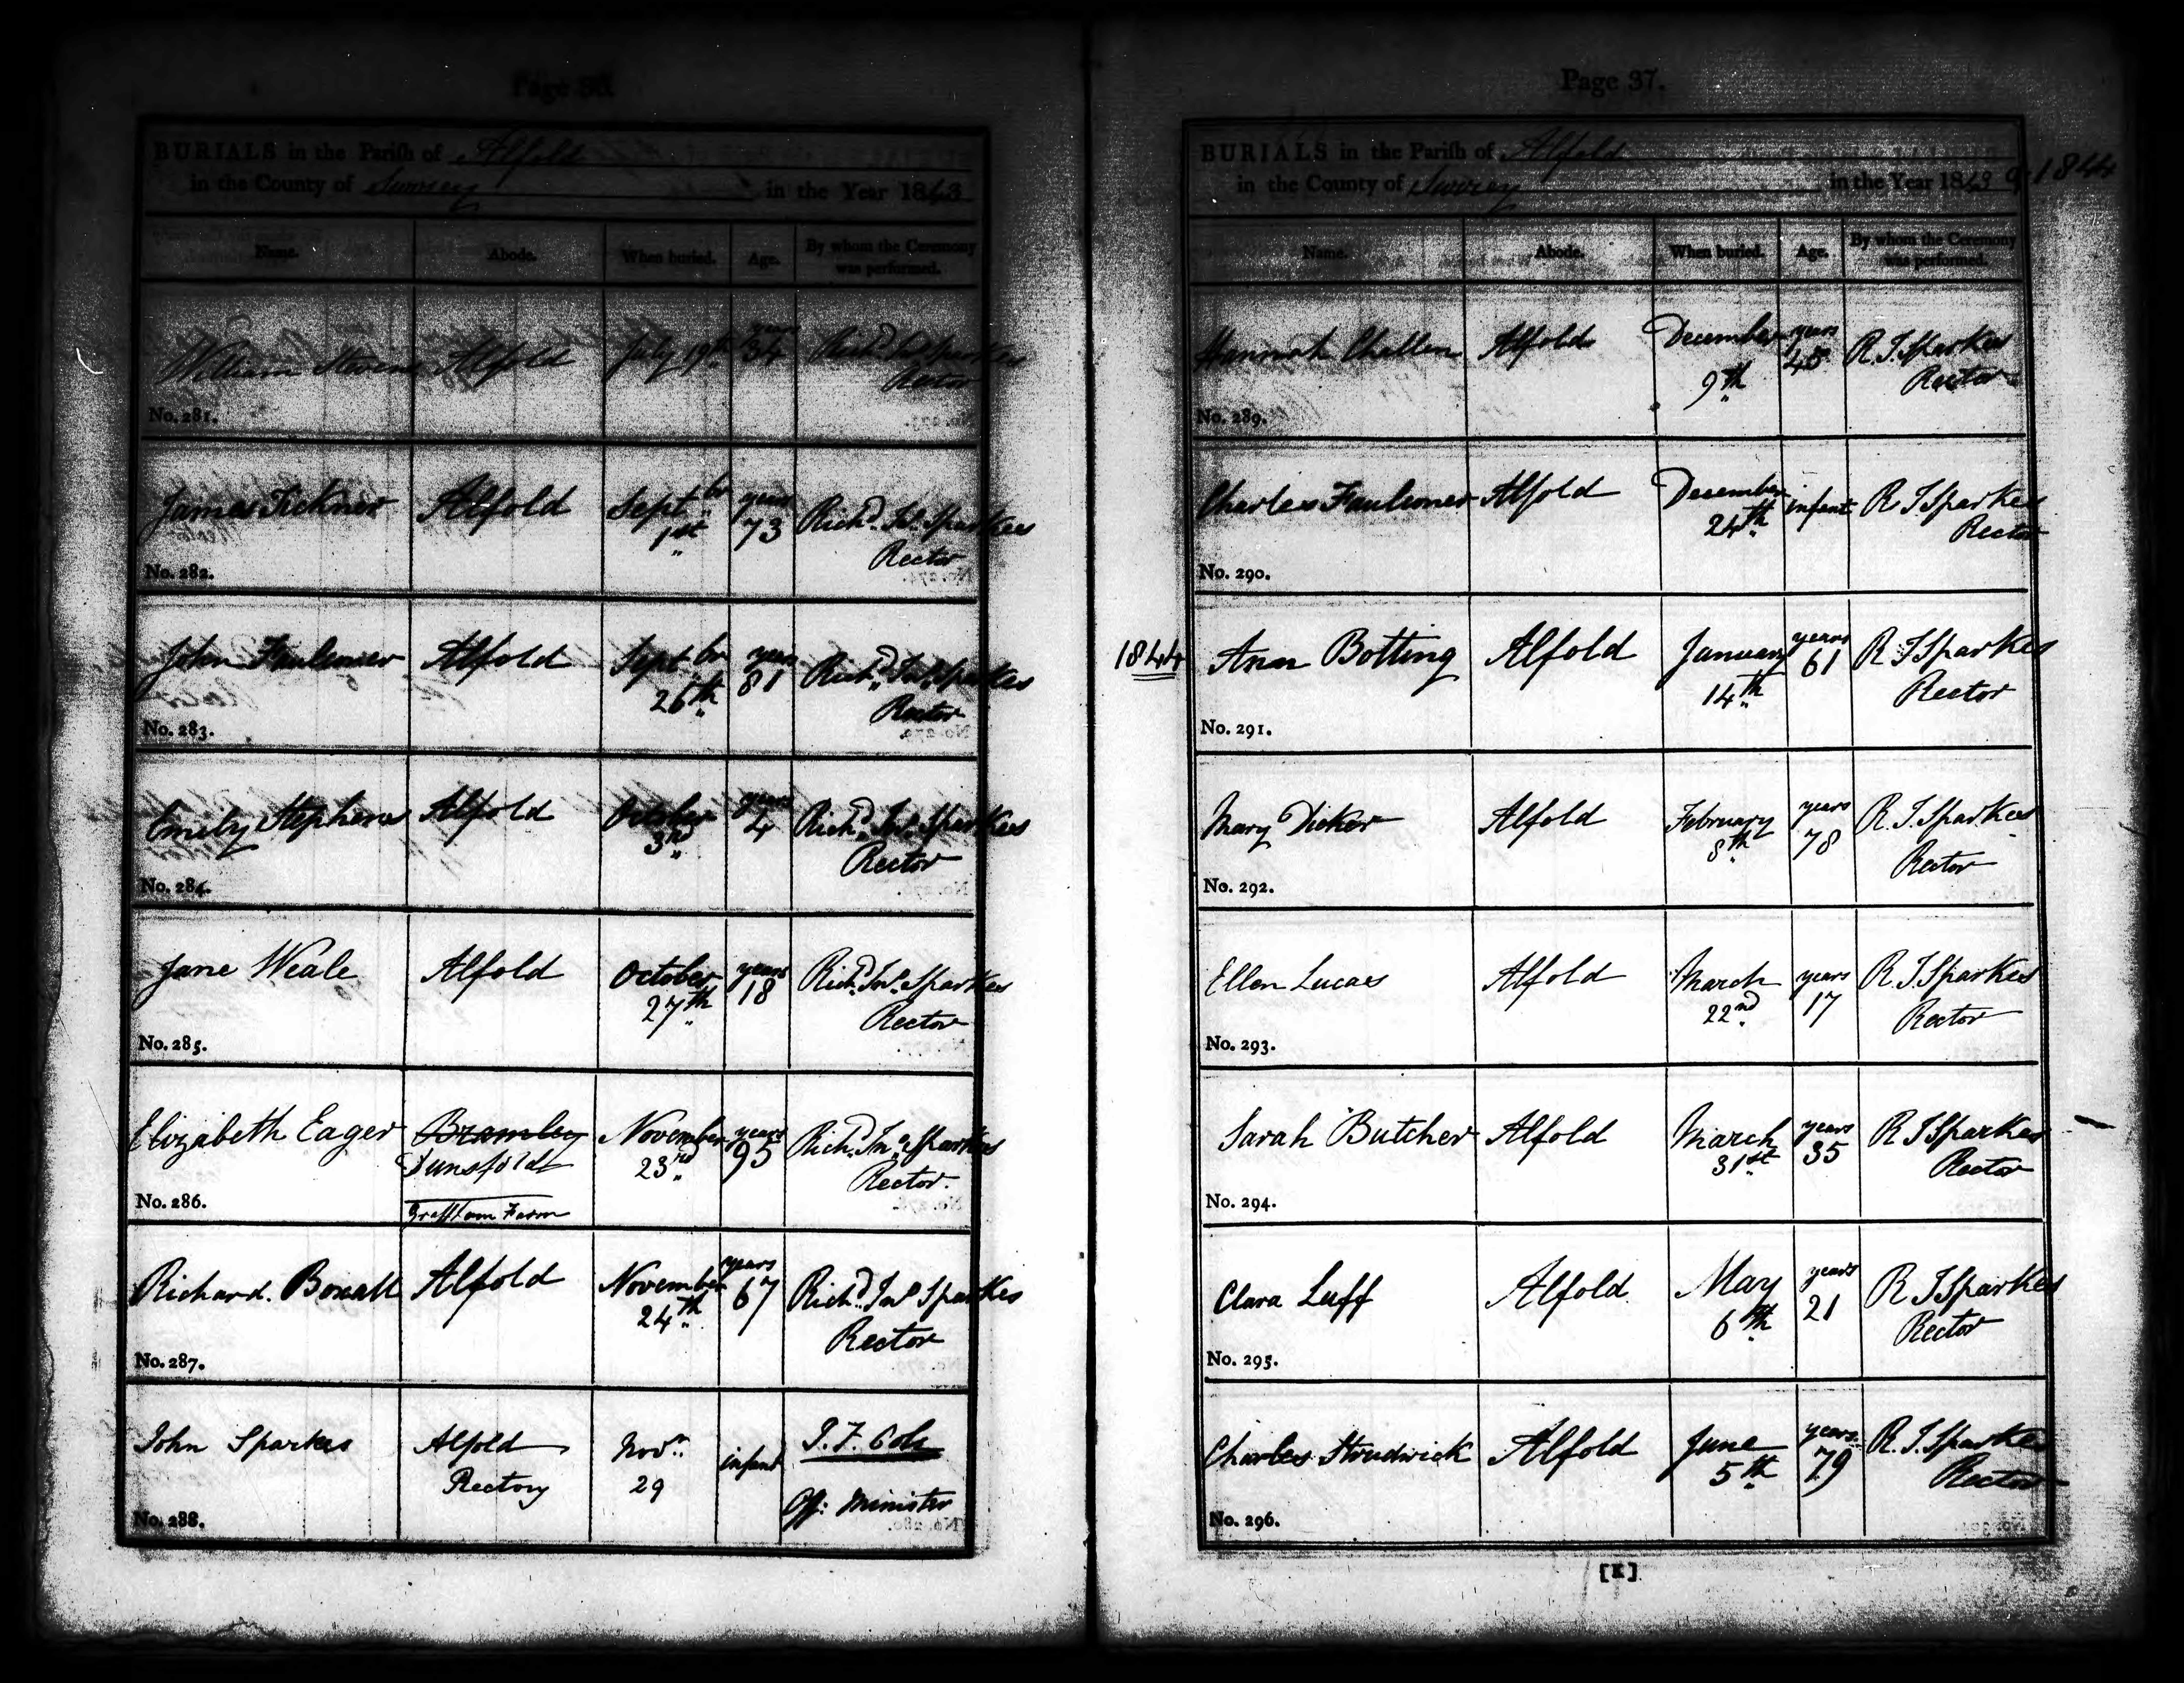 Page 36
BURIALS in the Parish of Alfold
in the County of Surrey in the Year 1843
Name. Abode. When buried. Age. By whom the Ceremony was performed.
William Stevens Alfold July 19th years 34 Richd. Jno. Sparkes
Rector
No. 281.
James Tickner Alfold Septbr 1st years 73 Richd. Jno. Sparkes
Rector
No. 282.
John Faulconer Alfold Septbr 26th years 81 Richd. Jno. Sparkes
Rector
No. 283.
Emily Stephens Alfold October 3rd years 4 Richd. Jno. Sparkes
Rector
No. 284.
Jane Weale Alfold October 27th years 18 Richd. Jno. Sparkes
Rector
No. 285.
Elizabeth Eager Bramley Dunsfold November 23rd years 95 Richd. Jno. Sparkes
Rector.
No. 286. Grafham Farm
Richard Boxall Alfold November 24th years 67 Richd. Jno Sparkes
Rector
No. 287.
John Sparkes Alfold Novr. infant J. F. Cole
Rectory 29
Off: Minister
No. 288.
Page 37.
BURIALS in the Parish of Alfold
in the County of Surrey in the Year 1843 & 1844
Name. Abode. When buried. Age. By whom the Ceremony was performed.
Hannah Challen Alfold December 9th years 45 R. J. Sparkes
Rector
No. 289.
Charles Faulconer Alfold December 24th infant R J Sparkes
Rector
No. 290.
1844 Ann Botting Alfold January 14th years 61 R J Sparkes
Rector
No. 291.
Mary Dicker Alfold February 8th years 78 R. J. Sparkes
Rector
No. 292.
Ellen Lucas Alfold March 22nd years 17 R. J. Sparkes
Rector
No. 293.
Sarah Butcher Alfold March 31st years 35 R J Sparkes
Rector
No. 294.
Clara Luff Alfold May 6th years 21 R J Sparkes
Rector
No. 295.
Charles Strudwick Alfold June 5th years 79 R. J. Sparkes
Rector
No. 296.
[K]